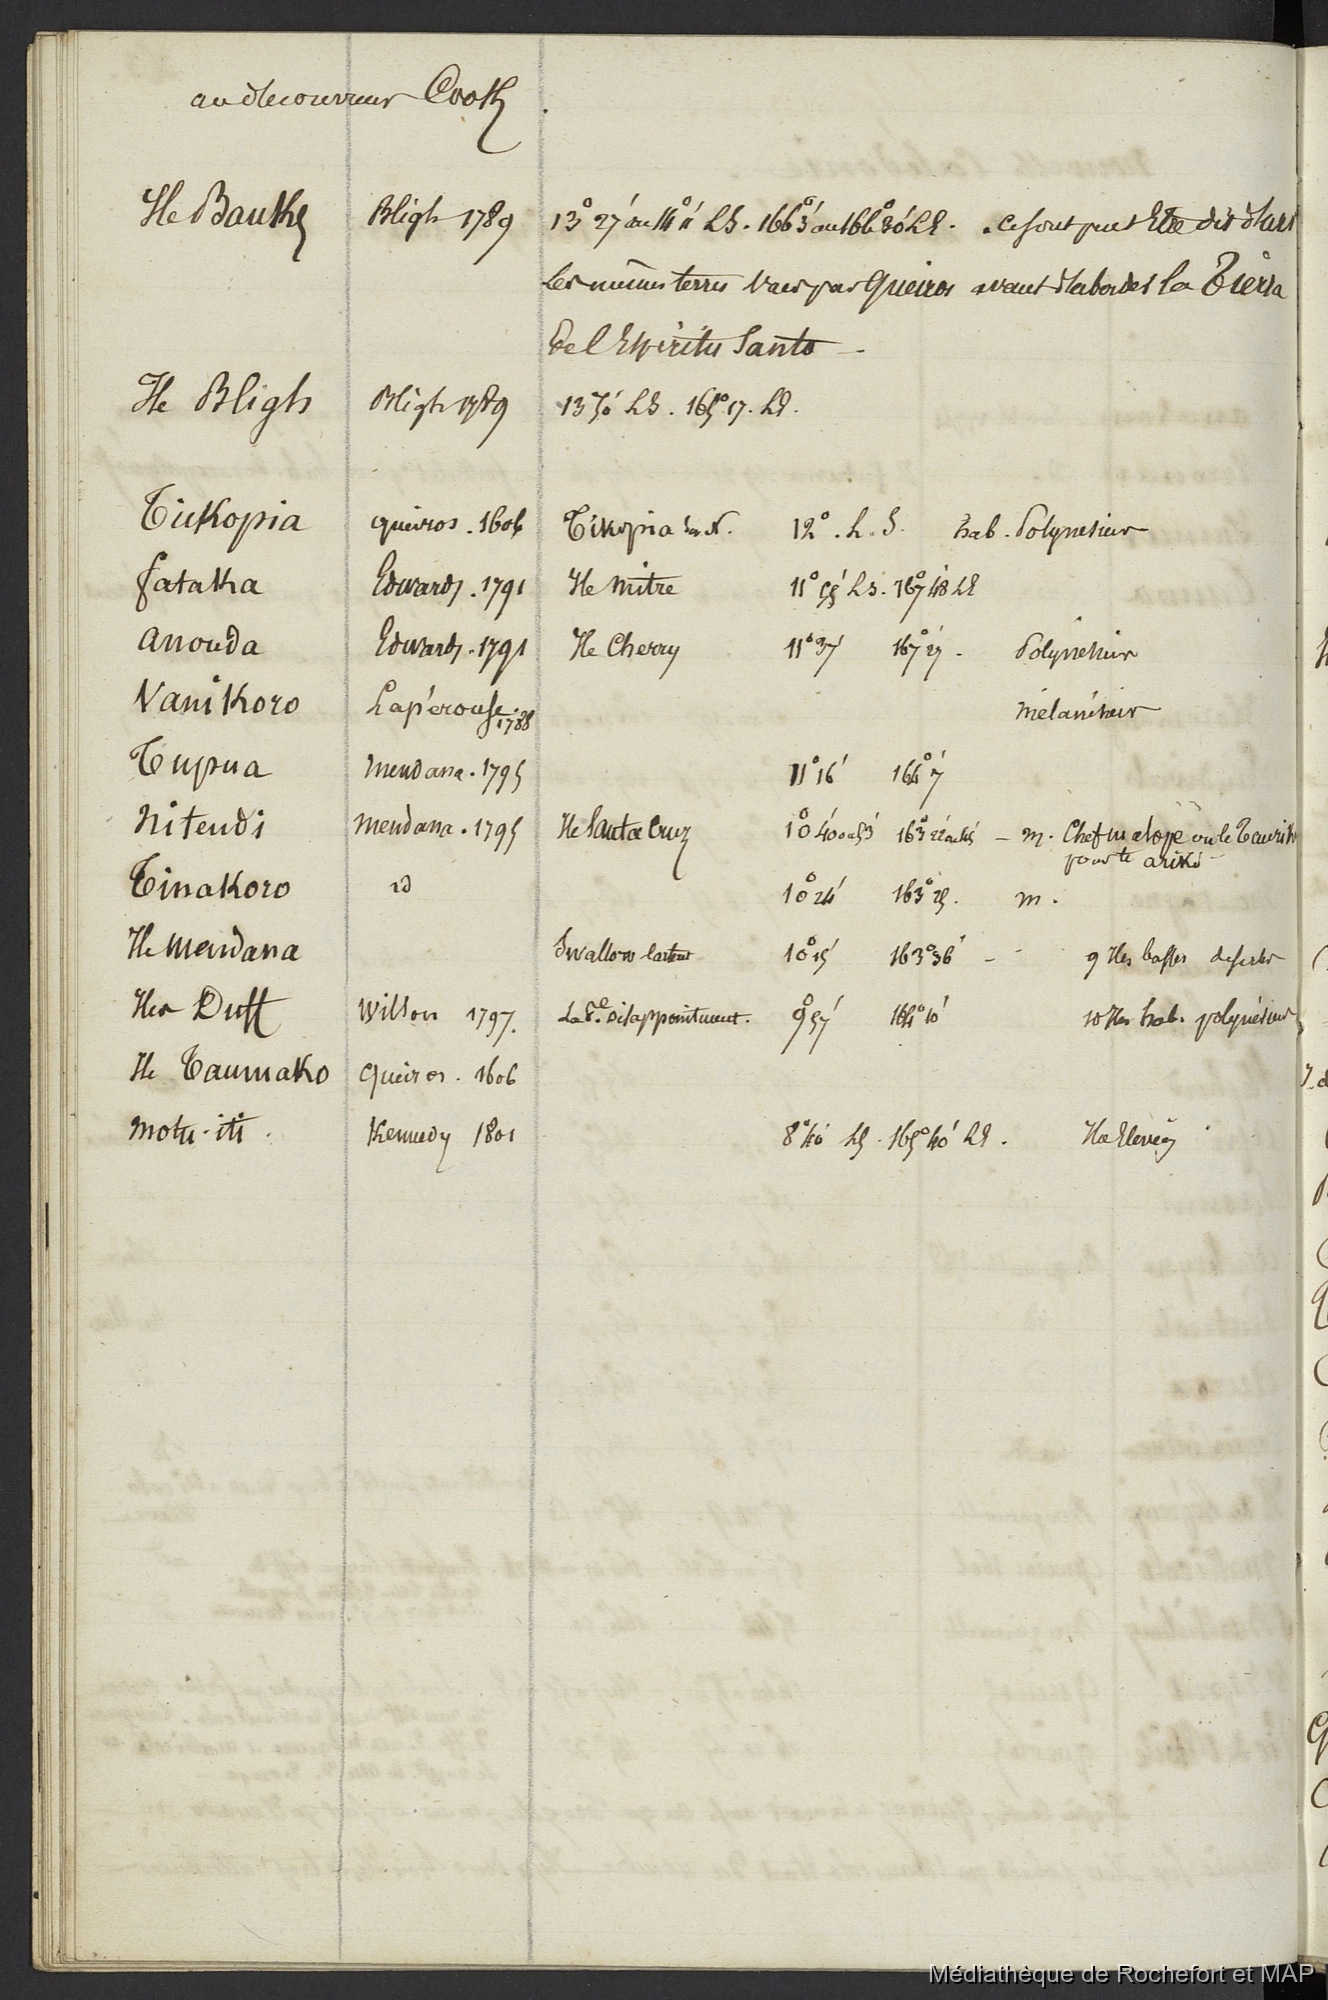 au decouvreur Cook
Ile Banks Bligh 1789 13° 27' au 14° 11' LS. 166° 3' au 166° 30' LE. Ce sont peut Etre dit d'Urv
Les mêmes terres vues par Queiros avant d'aborder la Tierra
del Espiritu Santo -
Ile Bligh Bligh 1789 13 30' LS. 165° 17. LE.
Tukopia Queiros. 1606 Tikopia 12°. L. S. hab. Polynesiens
fataka Edwards. 1791 Ile Mitre 11° 55' LS. 167° 48' LE
anouda Edwards. 1791 Ile Cherry 11° 37' 167° 27'. Polynesiens
Vanikoro Lapérouse 1788 Mélanésiens
Tupua Mendana. 1795 11° 16' 164° 7'
Nitendi Mendana. 1795 Ile Santa Cruz 10° 40' 163° 22' - m. Chef ou le
pour te ariki
Tinakoro id 10° 24' 163° 25. m.
Ile Mendana Swallow 10° 15' 163° 36' - 9 Iles basses desertes
Iles Duff Wilson 1797. Disappointment. 9° 57' 164° 10' 10 Iles hab. polynésiens
Ile Taumako Queiros. 1606
Motu-iti. Kennedy 1801 8° 40' LS. 165° 40' LE. Ile Elevée
Médiathèque de Rochefort et MAP